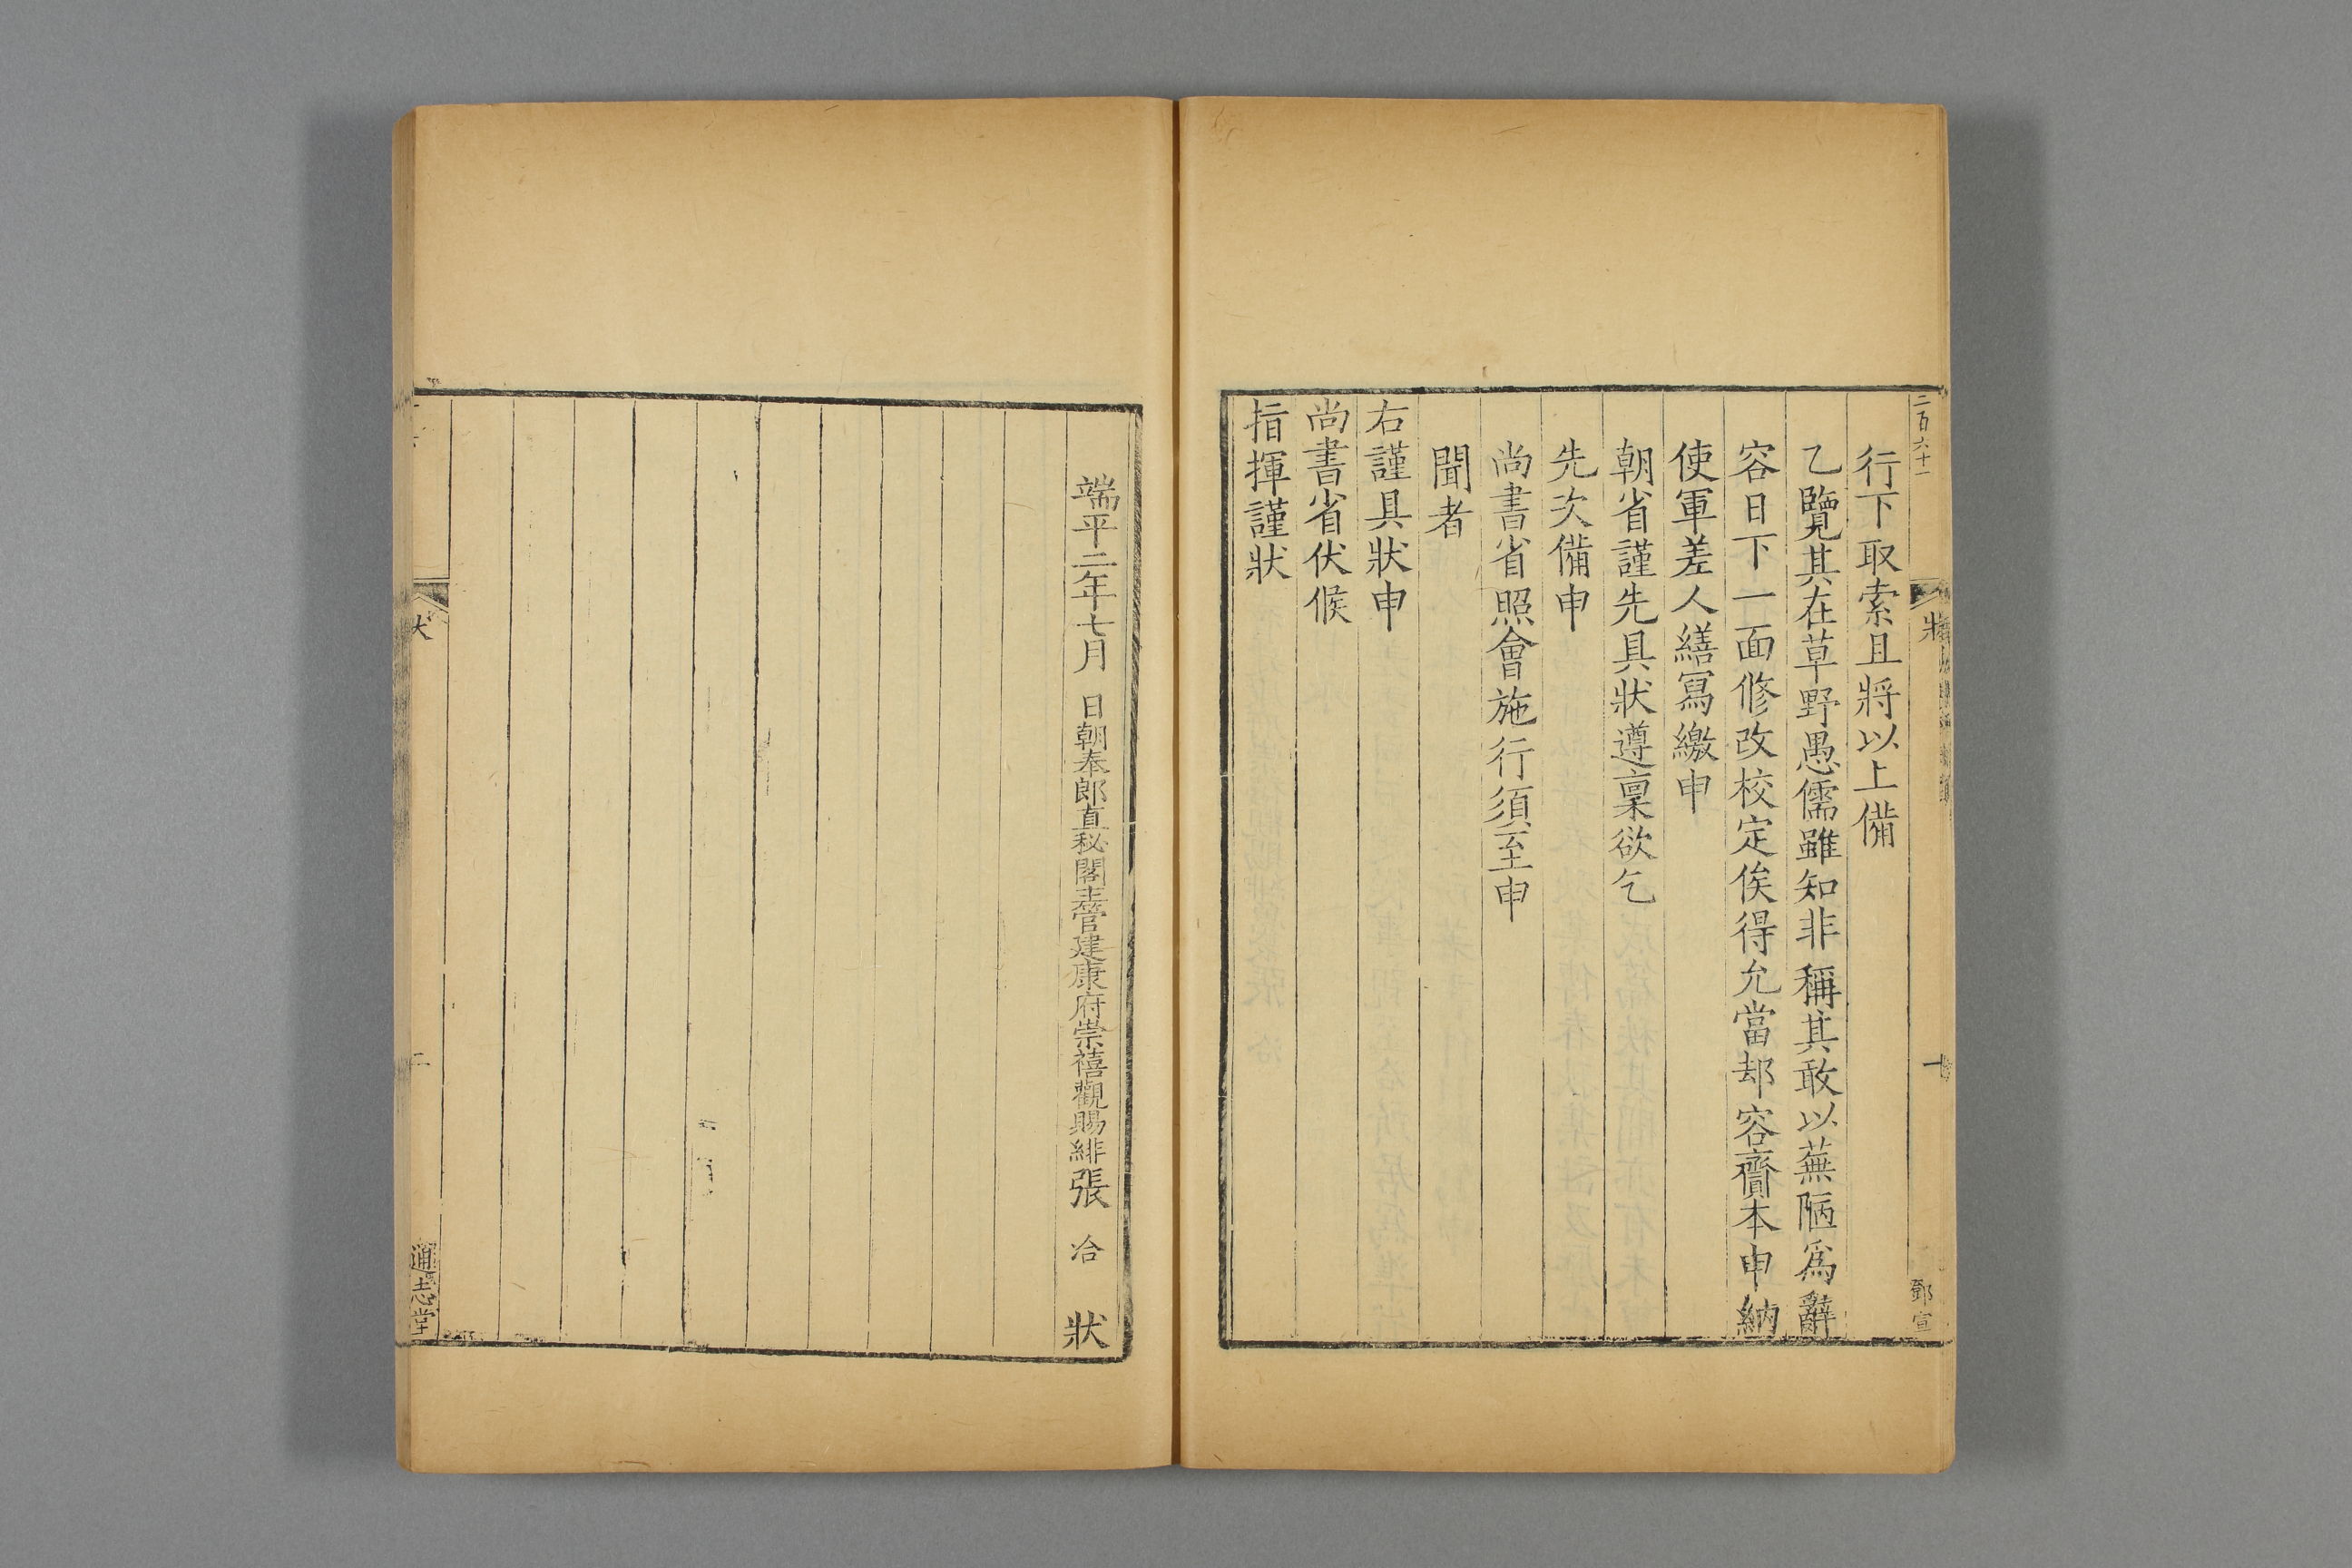 二百六十一
狀
一
鄧宣
行下取索且將以上備
乙覽其在草野愚儒雖知非稱其敢以蕪陋爲辭
容日下一面修改校定俟得允當却容齎本申納
使軍差人繕寫繳申
朝省謹先具狀遵稟欲乞
先次備申
尚書省照會施行須至申
聞者
右謹具狀申
尚書省伏候
指揮謹狀
端平二年七月 日朝奉郎直秘閣主管建康府崇禧觀賜緋張 洽 狀
二
通志堂